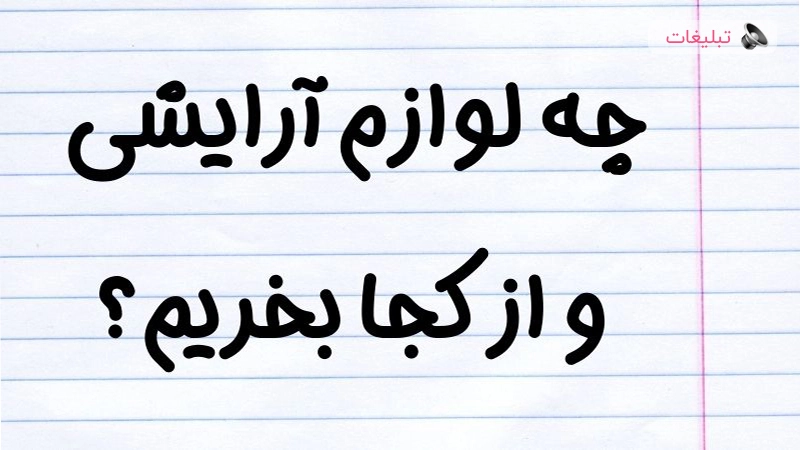 تبلیغات
چه لوازم آرایشی
و از کجا بخریم؟